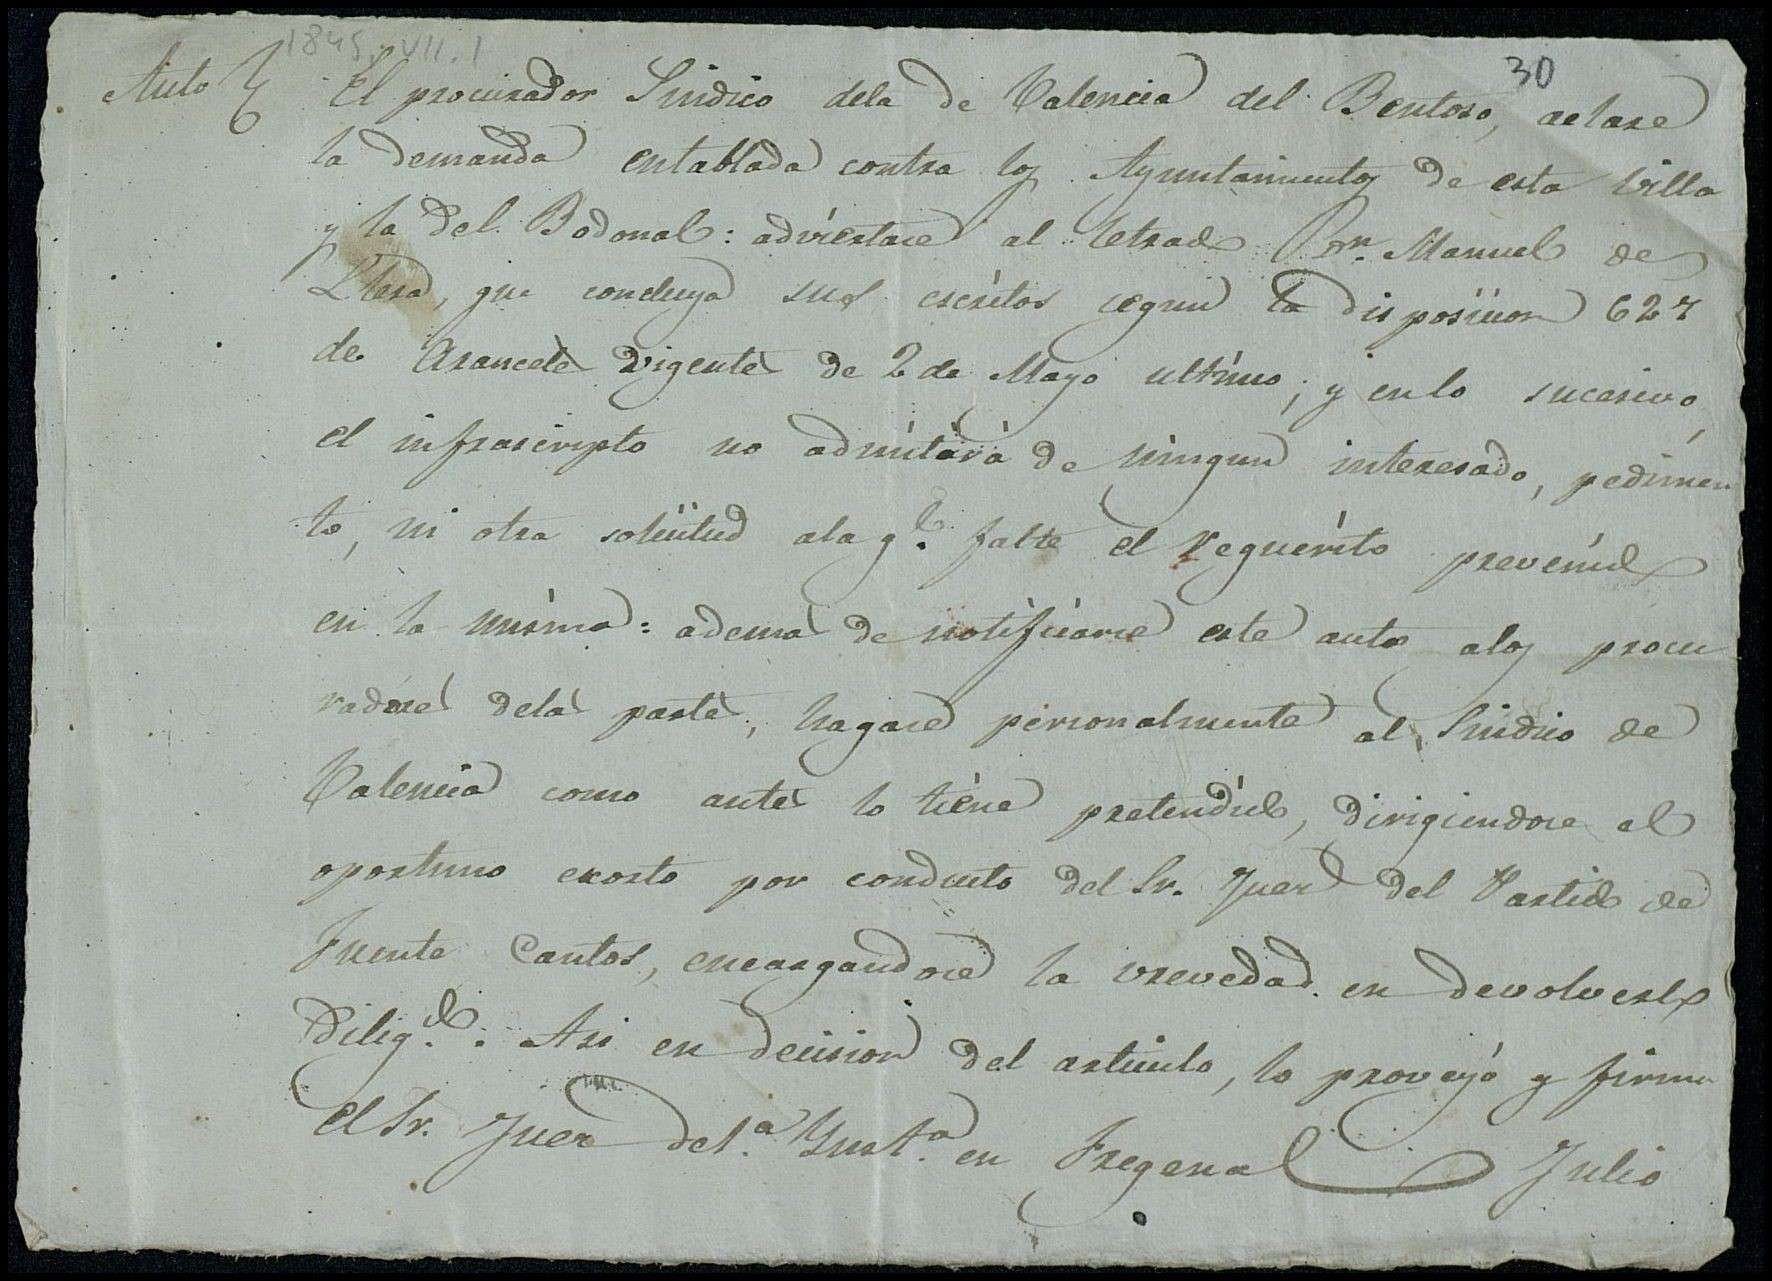 1845. VII. 1
30
Auto El procurador Sindico dela de Valencia del Bentoso, aclare
la demanda entablada contra los Ayuntamientos de esta villa
y la del Bodonal: adviertace al letrado Don Manuel de
Llera, que concluya sus escritos cegun la disposicion 627
de Arancele vigente de 2 de Mayo ultimo; y en lo sucesivo,
el infrascripto no admitirá de ningun interesado, pedimen
to, ni otra solicitud ala ql. falte el requicito prevenido
en la misma: ademas de notificarce este auto alos procu
radores delas partes, hagace personalmente al Sindico de
Valencia como antes lo tiene pretendido, dirigiendose el
oportuno exorto por conducto del Sr. Juez del Partido de
Fuente Cantos, encargandoce la vrevedad en devolverlo
diligdo. Asi en decision del articulo, lo proveyó y firma
el Sr. Juez de 1.a Ynst.a en Fregenal Julio